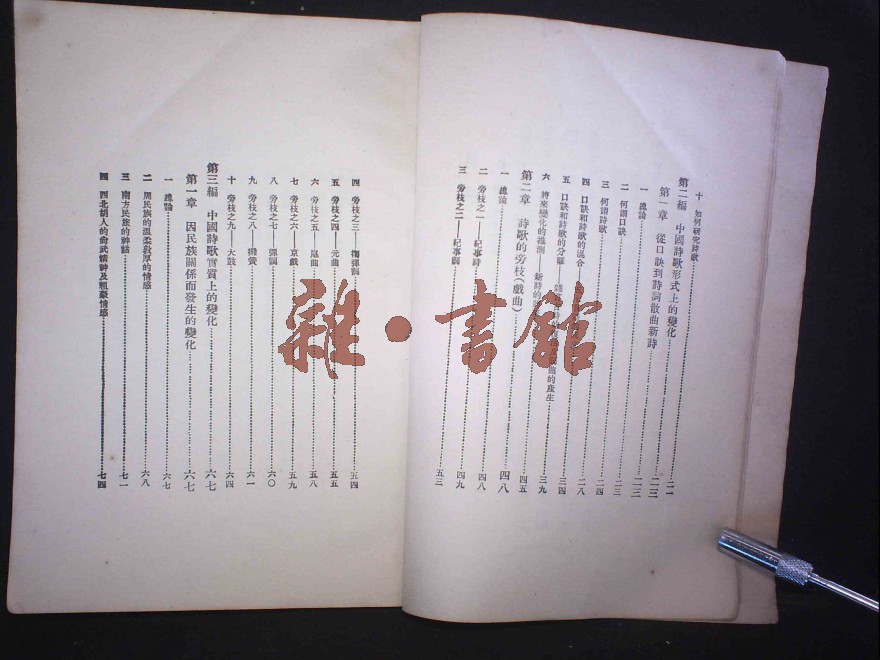 十 如何研究詩歌……二一
第二編 中國詩歌形式上的變化……二三
第一章 從口訣到詩詞散曲新詩……二三
一 總論……二三
二 何謂口訣……二三
三 何謂詩歌……二四
四 口訣和詩歌的混合……二八
五 口訣和詩歌的分離——的產生……三四
六 將來變化的推測 新詩的……三九
第二章 詩歌的旁枝(戲曲)……四五
一 總論……四八
二 旁枝之一——紀事詩……四八
三 旁枝之二——紀事詞……四九
五三
四 旁枝之三——搊彈詞……五四
五 旁枝之四——元曲……五五
六 旁枝之五——崑曲……五八
七 旁枝之六——京戲……五九
八 旁枝之七——彈詞……六〇
九 旁枝之八——灘簧……六一
十 旁枝之九——大鼓……六四
第三編 中國詩歌實質上的變化……六七
第一章 因民族關係而發生的變化……六七
一 總論……六七
二 周民族的溫柔敦厚的情感……六八
三 南方民族的神話……七一
四 西北胡人的尚武精神及粗豪情感……七四
雜·書館